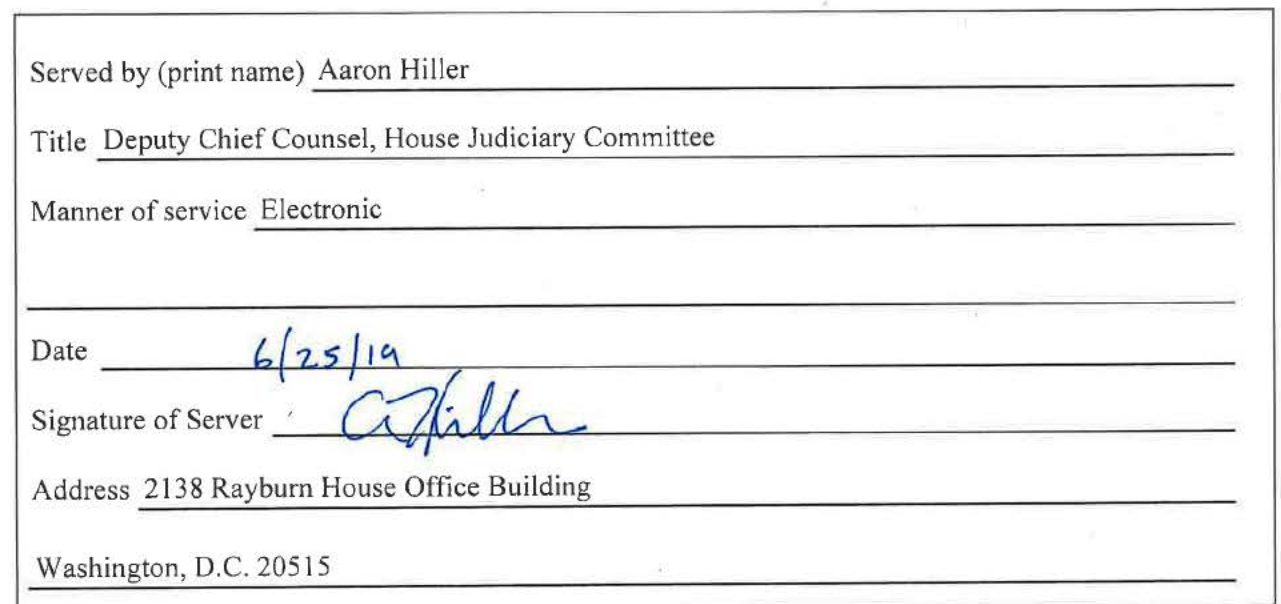 Served by (print name) Aaron Hiller
Title Deputy Chief Counsel, House Judiciary Committee
Manner of service Electronic
Date 6/25/19
Signature of Server A Hiller
Address 2138 Rayburn House Office Building
Washington, D.C. 20515